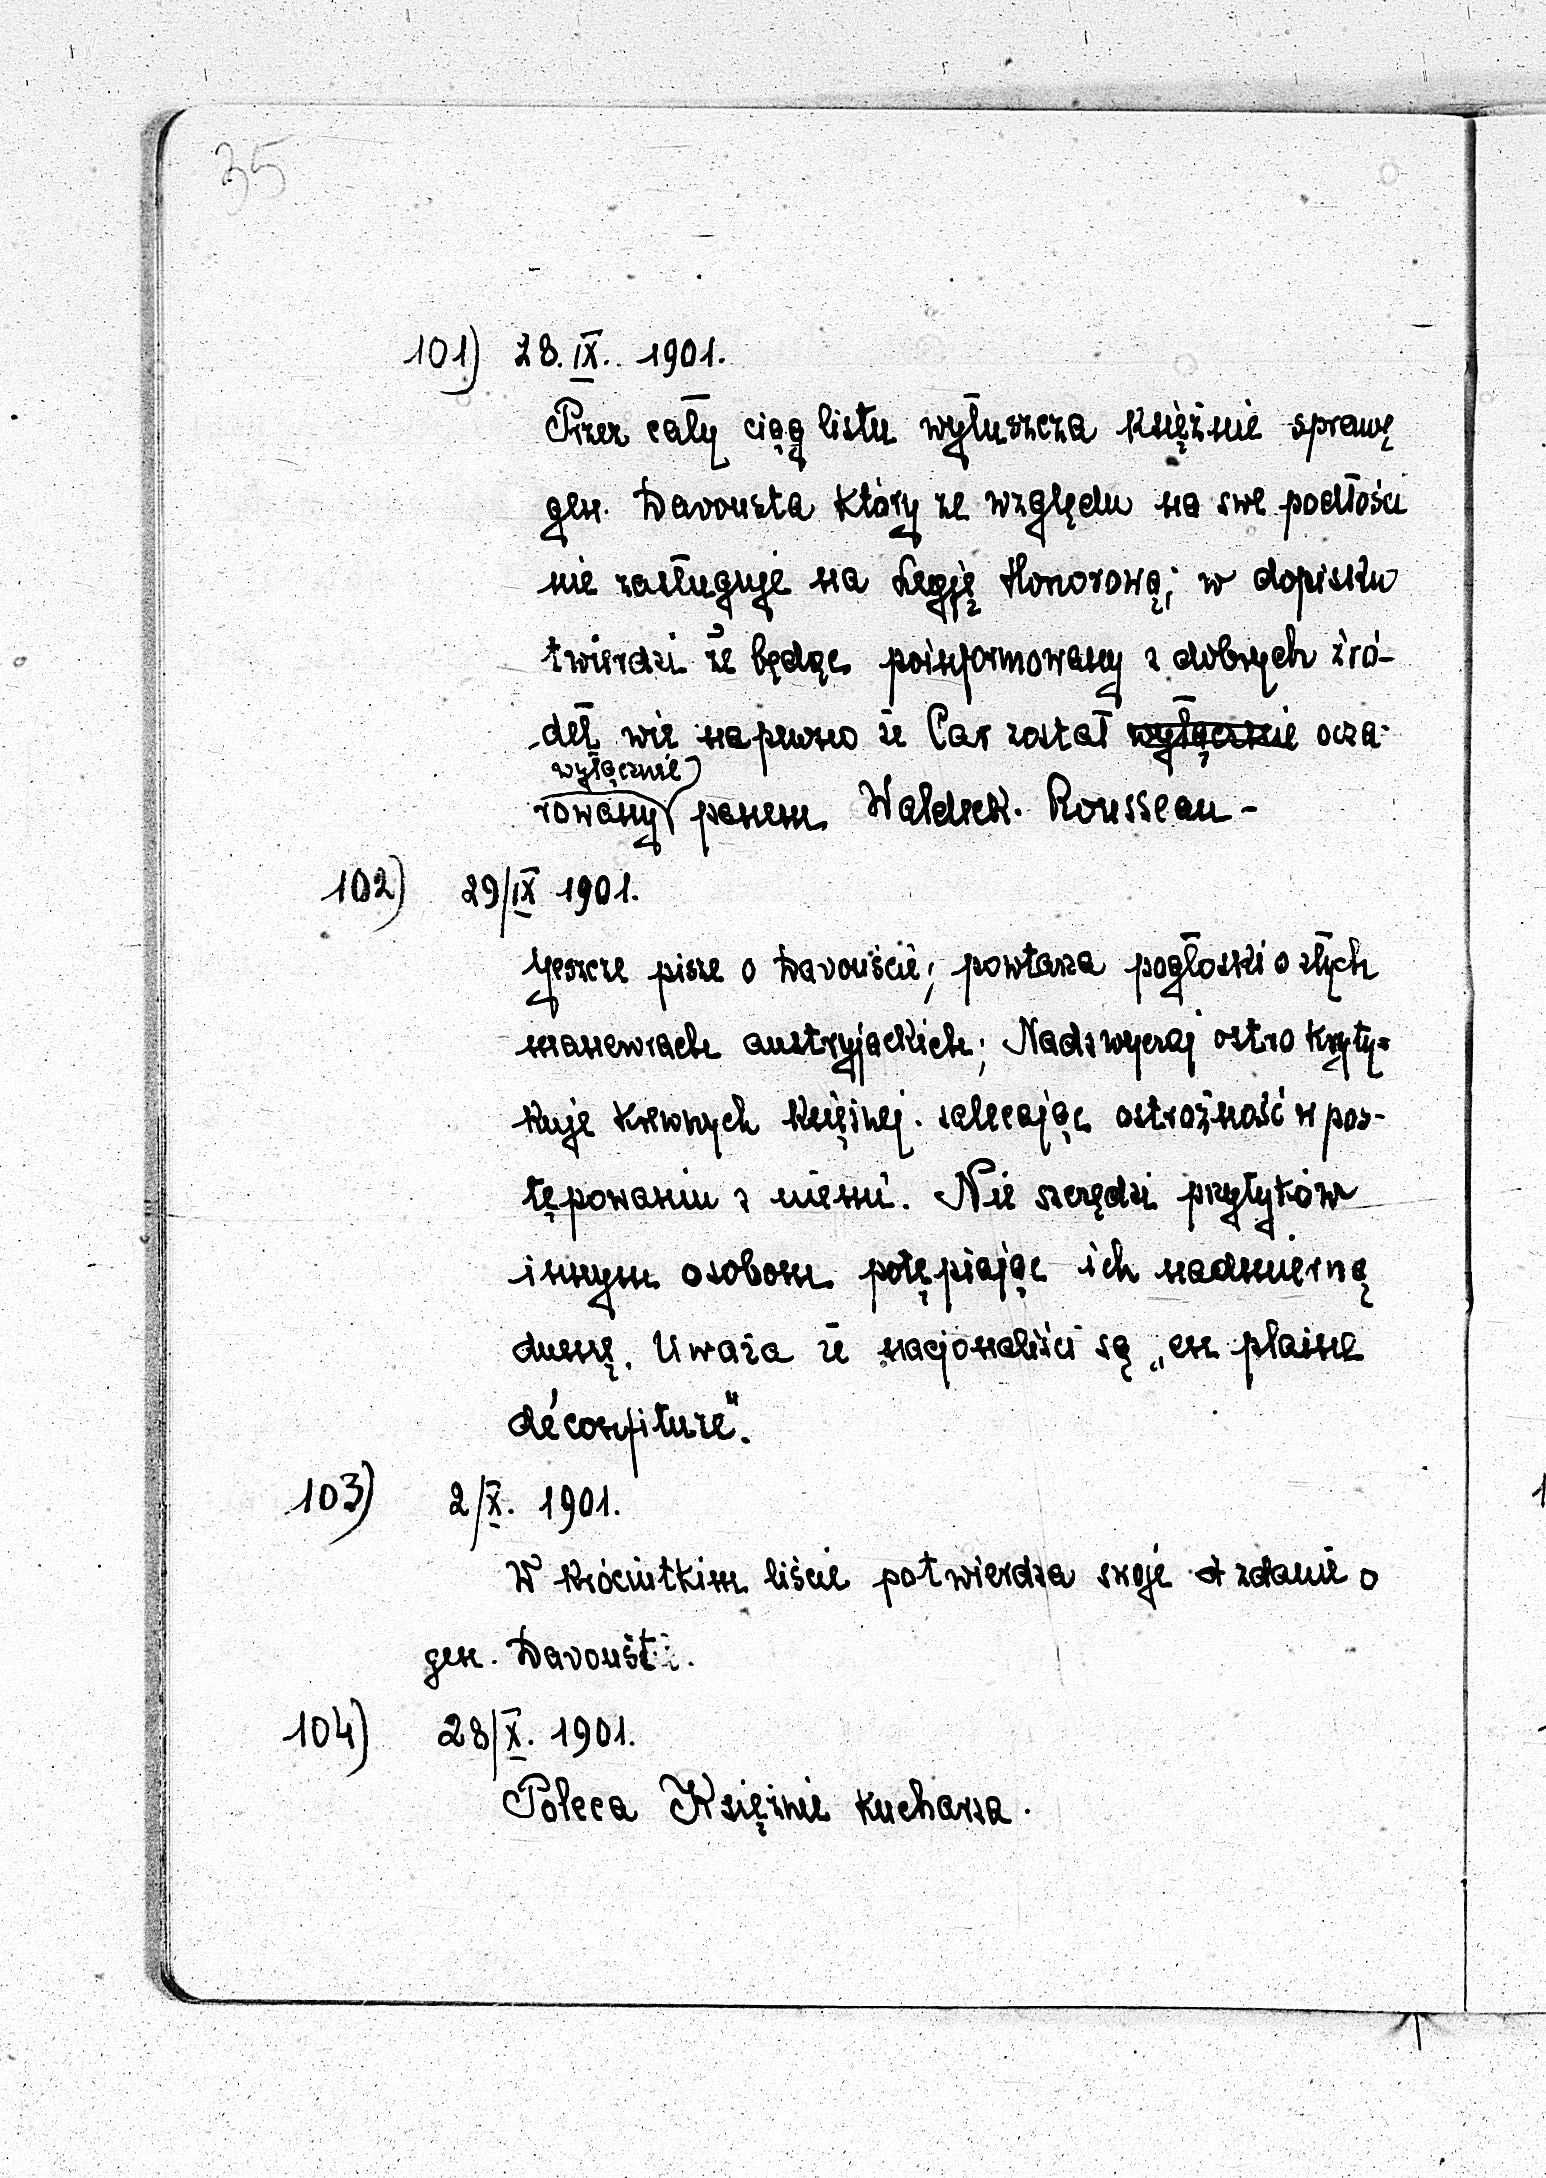 35
101) 28. IX. 1901.
Przez cały ciąg listu wyłuszcza księżnie sprawę
gen. Davousta który ze względu na swe podłości
nie zasługuje na Legję Honorową; w dopisku
twierdzi że będąc poinformowany z dobrych źró-
deł wie napewno że Car został wyłącznie ocza-
wyłącznie
rowany panem Waldeck. Rousseau -
102) 29/IX 1901.
Jeszcze pisze o Davouście; powtarza pogłoski o złych
manewrach austryjackich; Nadzwyczaj ostro kryty=
kuje krewnych księżnej. zalecając ostrożność w pos-
tępowaniu z niemi. Nie szczędzi przytyków
innym osobom potępiając ich nadmierną
dumę. Uważa że nacjonaliści są „en plaine
déconfiture".
103) 2/X. 1901.
W króciutkim liście potwierdza swoje zdanie o
gen. Davoust.
104) 28/X. 1901.
Poleca Księżnie kucharza.